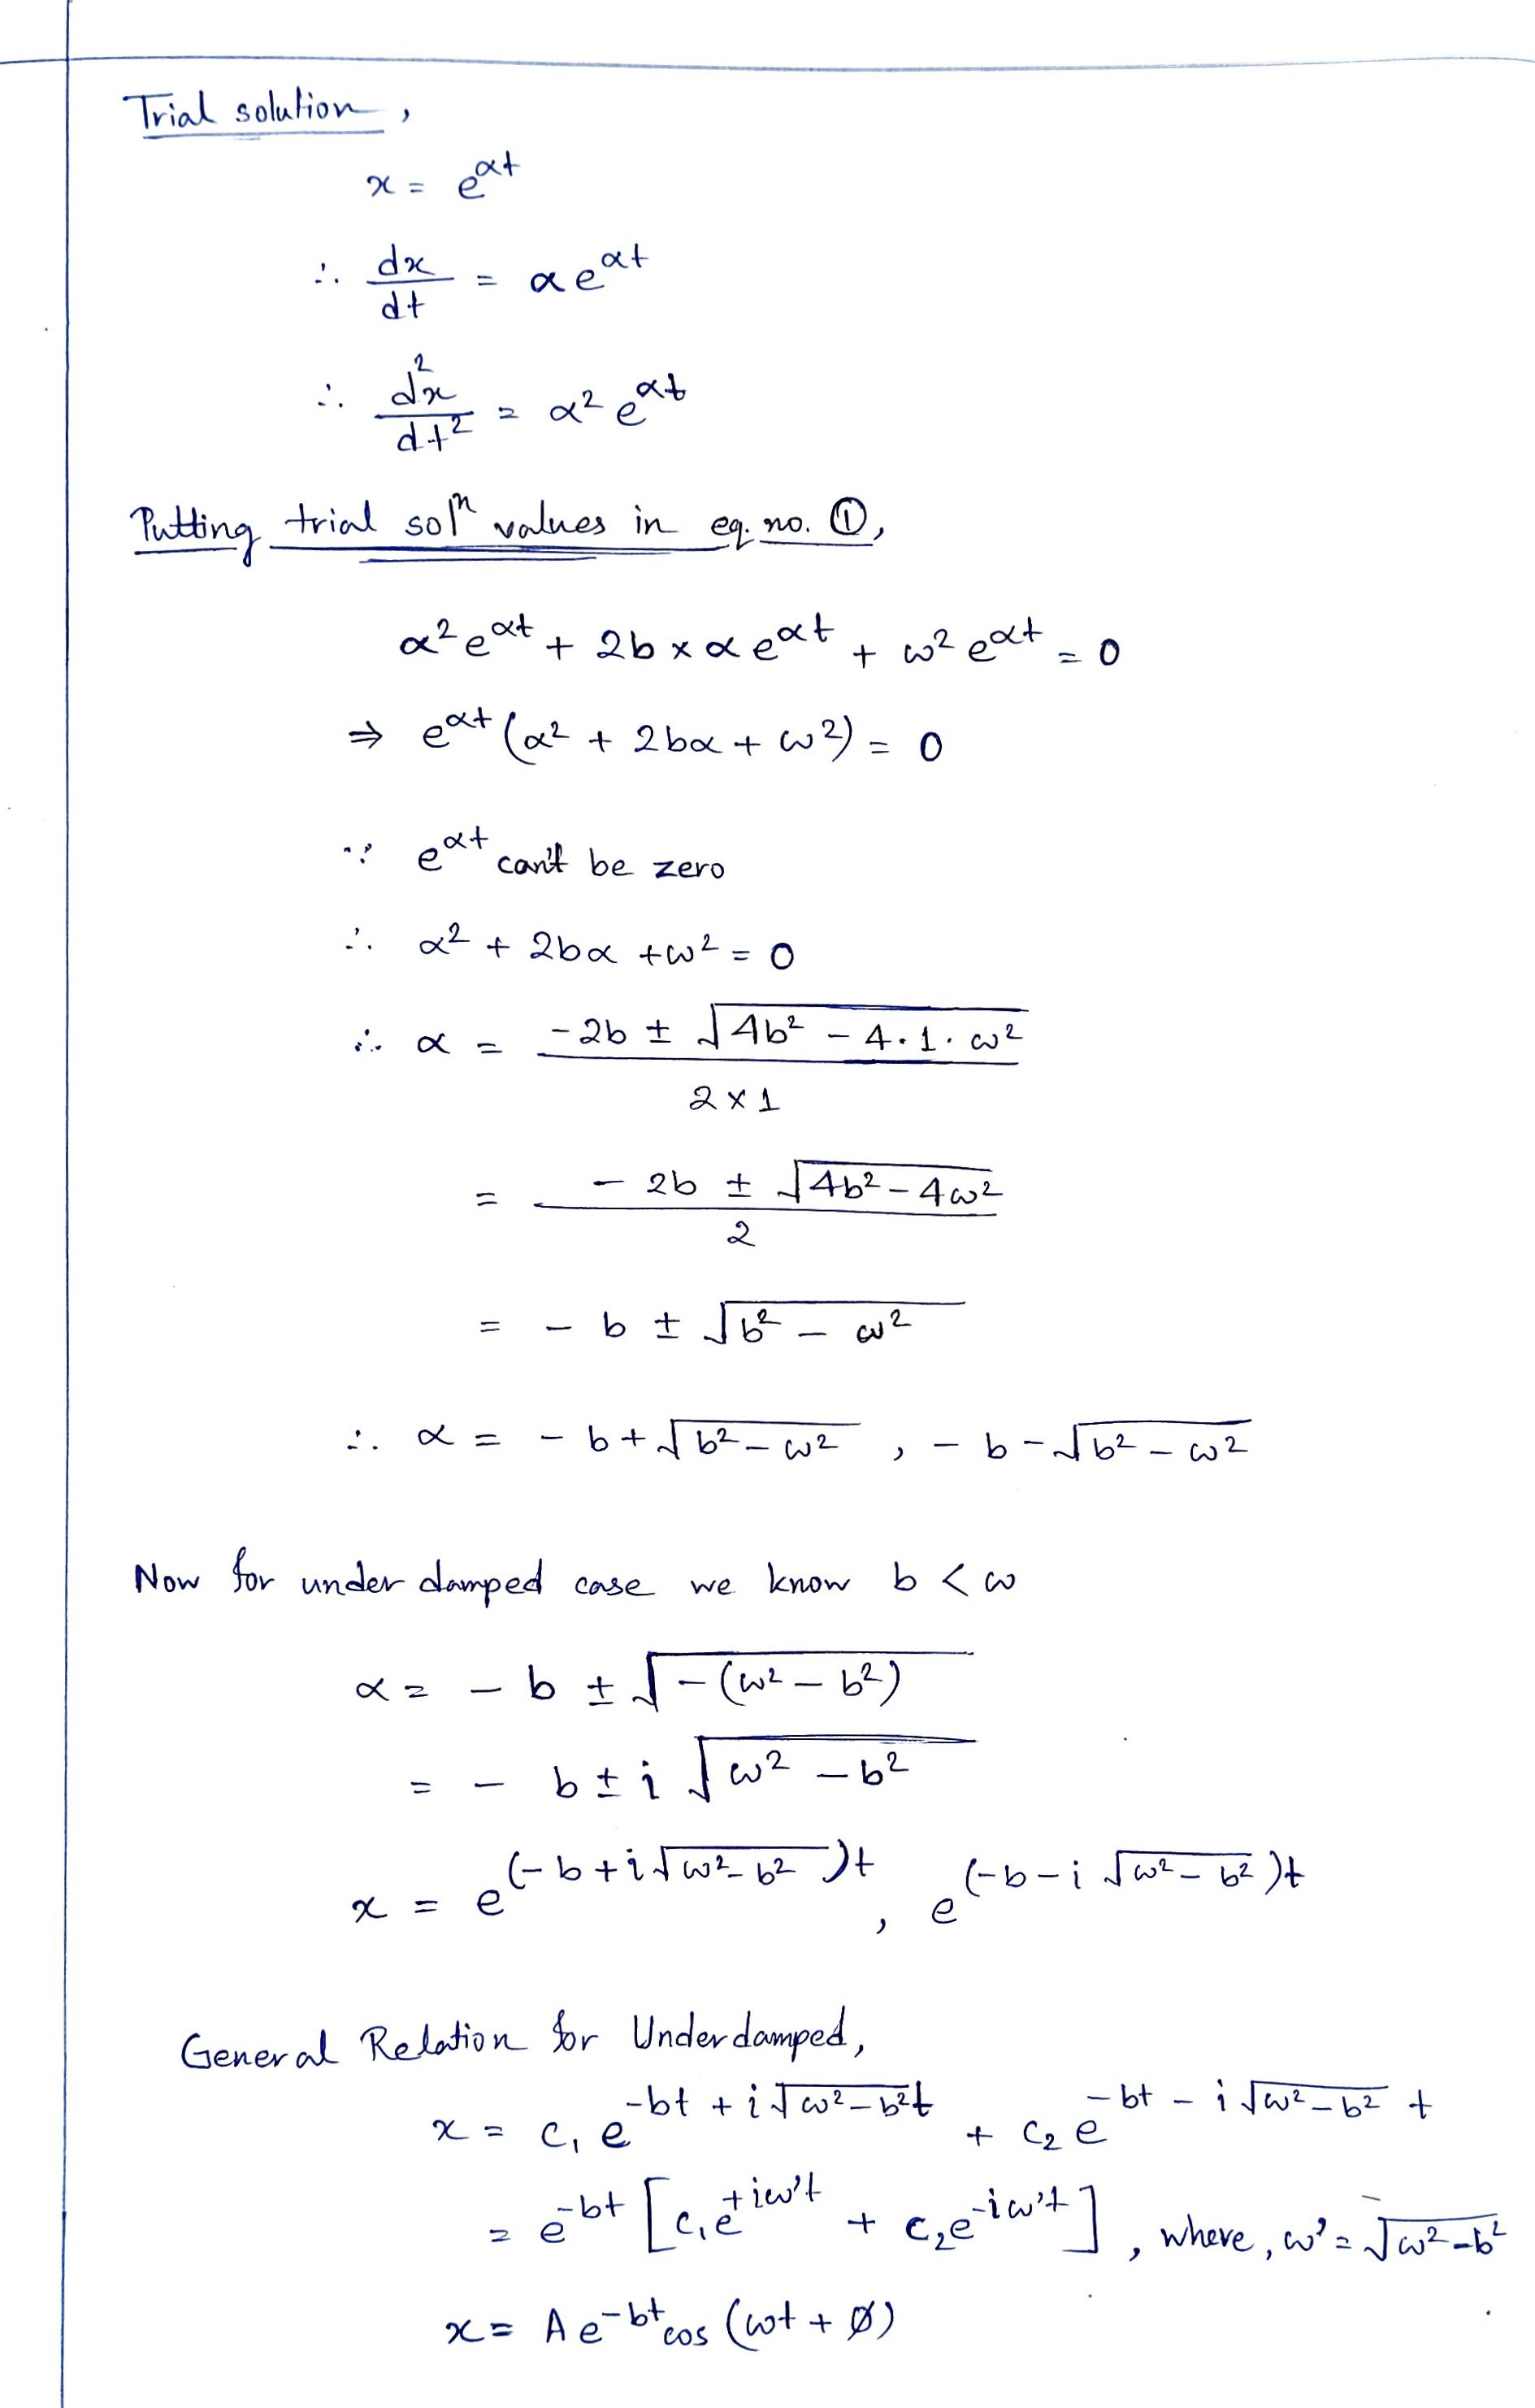 Trial solution,
x = e^{αt}
∴ dx/dt = αe^{αt}
∴ d²x/dt² = α² e^{αt}
Putting trial solⁿ values in eq. no. ①,
α² e^{αt} + 2b × α e^{αt} + ω² e^{αt} = 0
⇒ e^{αt} (α² + 2bα + ω²) = 0
∵ e^{αt} can't be zero
∴ α² + 2bα + ω² = 0
∴ α = (-2b ± √(4b² - 4.1.ω²)) / (2 × 1)
= (-2b ± √(4b² - 4ω²)) / 2
= - b ± √(b² - ω²)
∴ α = - b + √(b² - ω²) , - b - √(b² - ω²)
Now for under damped case we know b < ω
α = - b ± √(-(ω² - b²))
= - b ± i √(ω² - b²)
x = e^{(-b + i√(ω² - b²))t} , e^{(-b - i√(ω² - b²))t}
General Relation for Underdamped,
x = c₁ e^{-bt + i√(ω² - b²)t} + c₂ e^{-bt - i√(ω² - b²) t}
= e^{-bt} [c₁e^{+iω't} + c₂e^{-iω't}] , where, ω' = √(ω² - b²)
x = A e^{-bt} cos (ωt + ø)